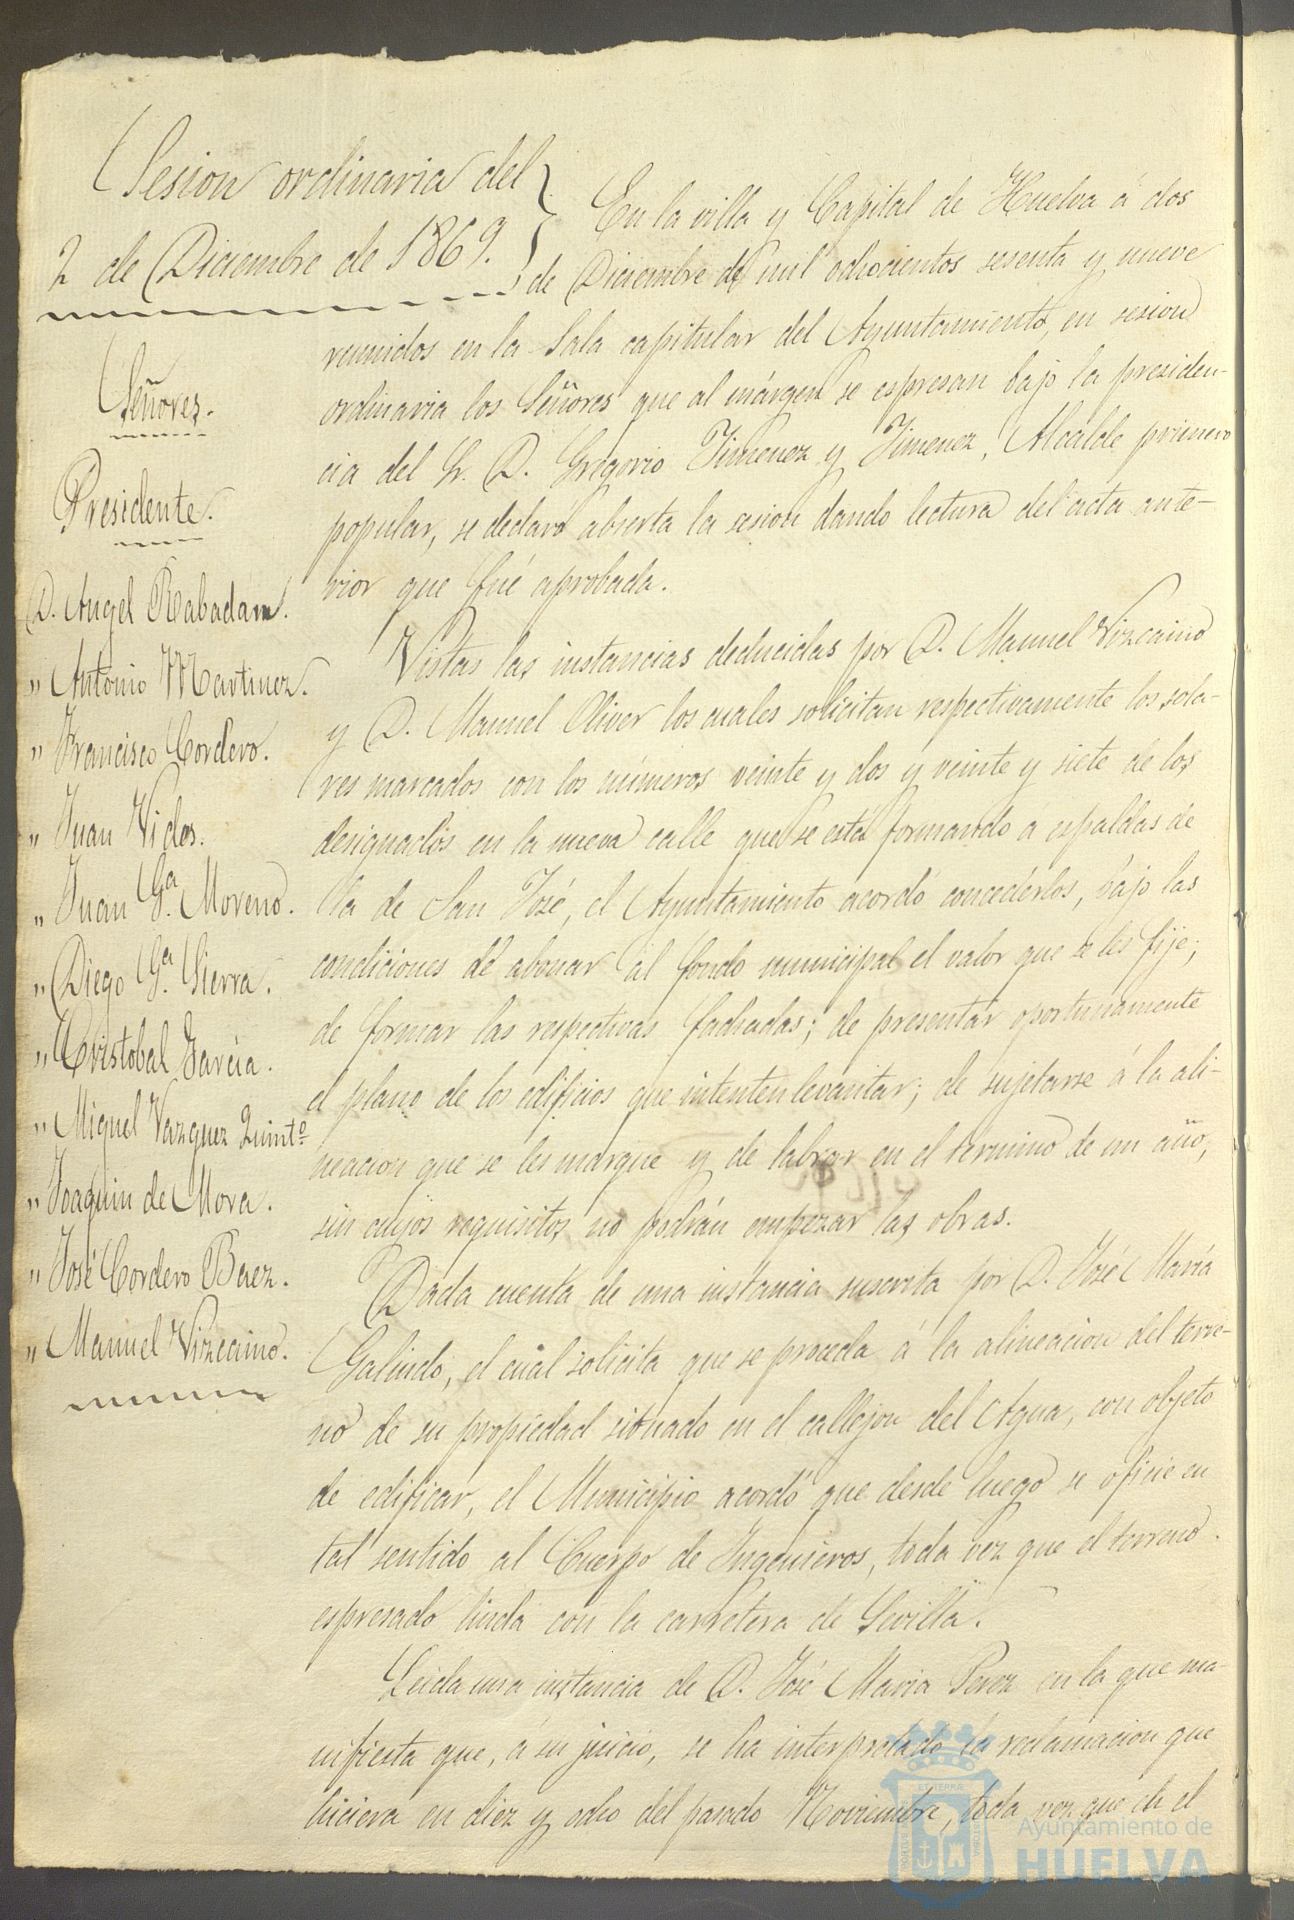 Sesion ordinaria del
2 de Diciembre de 1869.
Señores.
Presidente.
D. Angel Rabadán.
" Antonio Martinez.
" Francisco Cordero.
" Juan Vides.
" Juan Gª. Moreno.
" Diego Gª. Sierra.
" Cristobal Garcia.
" Miguel Vazquez Quintº
" Joaquin de Mora.
" José Cordero Perez.
" Manuel Vizcaino.
En la villa y Capital de Huelva á dos
de Diciembre de mil ochocientos sesenta y nueve
reunidos en la Sala capitular del Ayuntamiento, en sesion
ordinaria los Señores que al márgen se espresan bajo la presiden-
cia del Sr. D. Gregorio Jimenez y Jimenez, Alcalde primero
popular, se declaró abierta la sesion dando lectura del acta ante-
rior que fué aprobada.
Vistas las instancias deducidas por D. Manuel Vizcaino
y D. Manuel Oliver los cuales solicitan respectivamente los sola-
res marcados con los números veinte y dos y veinte y siete de los
designados en la nueva calle que se está formando a espaldas de
la de San José, el Ayuntamiento acordó concederlos, bajo las
condiciones de abonar al fondo municipal el valor que se les fije;
de formar las respectivas fachadas; de presentar oportunamente
el plano de los edificios que intenten levantar; de sujetarse á la ali-
neacion que se les marque y de labrar en el termino de un año,
sin cuyos requisitos no podrán empezar las obras.
Dada cuenta de una instancia suscrita por D. José Maria
Galindo, el cual solicita que se proceda á la alineacion del terre-
no de su propiedad situado en el callejon del Agua, con objeto
de edificar, el Municipio acordó que desde luego se oficie en
tal sentido al Cuerpo de Ingenieros, toda vez que el terreno
espresado linda con la carretera de Sevilla.
Leida una instancia de D. José Maria Perez en la que ma-
nifiesta que, á su juicio, se ha interpretado la reclamacion que
hiciera en diez y ocho del pasado Noviembre, toda vez que en el
Ayuntamiento de
HUELVA